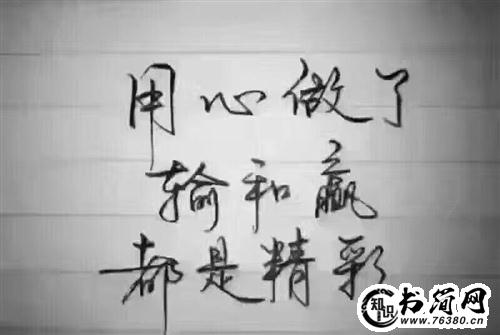 用心做了
输和赢
都是精彩
知识
书简网
www.76380.cn